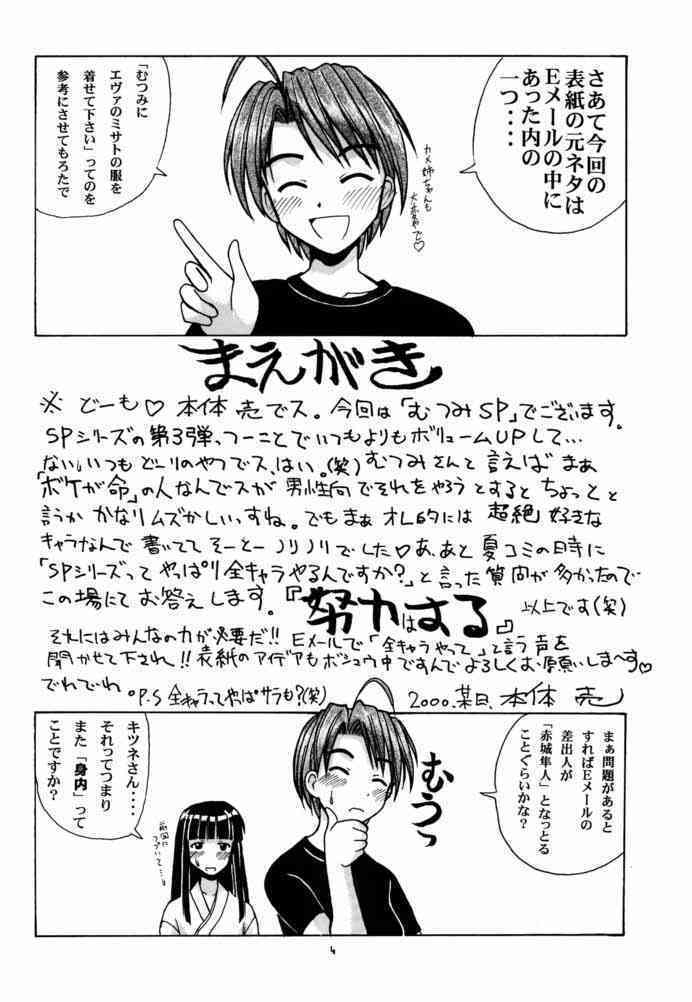 さあて今回の
表紙の元ネタは
Eメールの中に
あった内の
一つ・・・・
「むつみに
エヴァのミサトの服を
着せて下さい」ってのを
参考にさせてもろたで
カメ姉ちゃんも
大変やで♡
まえがき
※ どーも♡ 本体 売でス。今回は「むつみSP」でございます。
SPシリーズの第3弾、つーことでいつもよりもボリュームUPして…
ない、いつもどーりのやつでス、はい。(笑) むつみさんと言えば まぁ
「ボケが命」の人なんでスが 男性向でそれをやろうとすると ちょっと と
言うか かなりムズかしいっすね。でもまぁ オレ的には 超絶 好きな
キャラなんで 書いてて そーとーノリノリでした♡ あ、あと 夏コミの時に
「SPシリーズって やっぱり全キャラやるんですか?」と言った質問が多かったので
この場にて お答えします。『努力はする』 以上です(笑)
それにはみんなの力が必要だ!! Eメールで「全キャラやって」と言う声を
聞かせて下され!! 表紙のアイデアもボシュウ中ですんで よろしくお願いしま〜す♡
でわでわ。P.S 全キャラってやっぱサラも?(笑) 2000.某日、本体 売
まぁ問題があると
すればEメールの
差出人が
「赤城隼人」となっとる
ことぐらいかな?
むうっ
キツネさん・・・・
それってつまり
また「身内」って
ことですか?
前回に
つづいて…
4